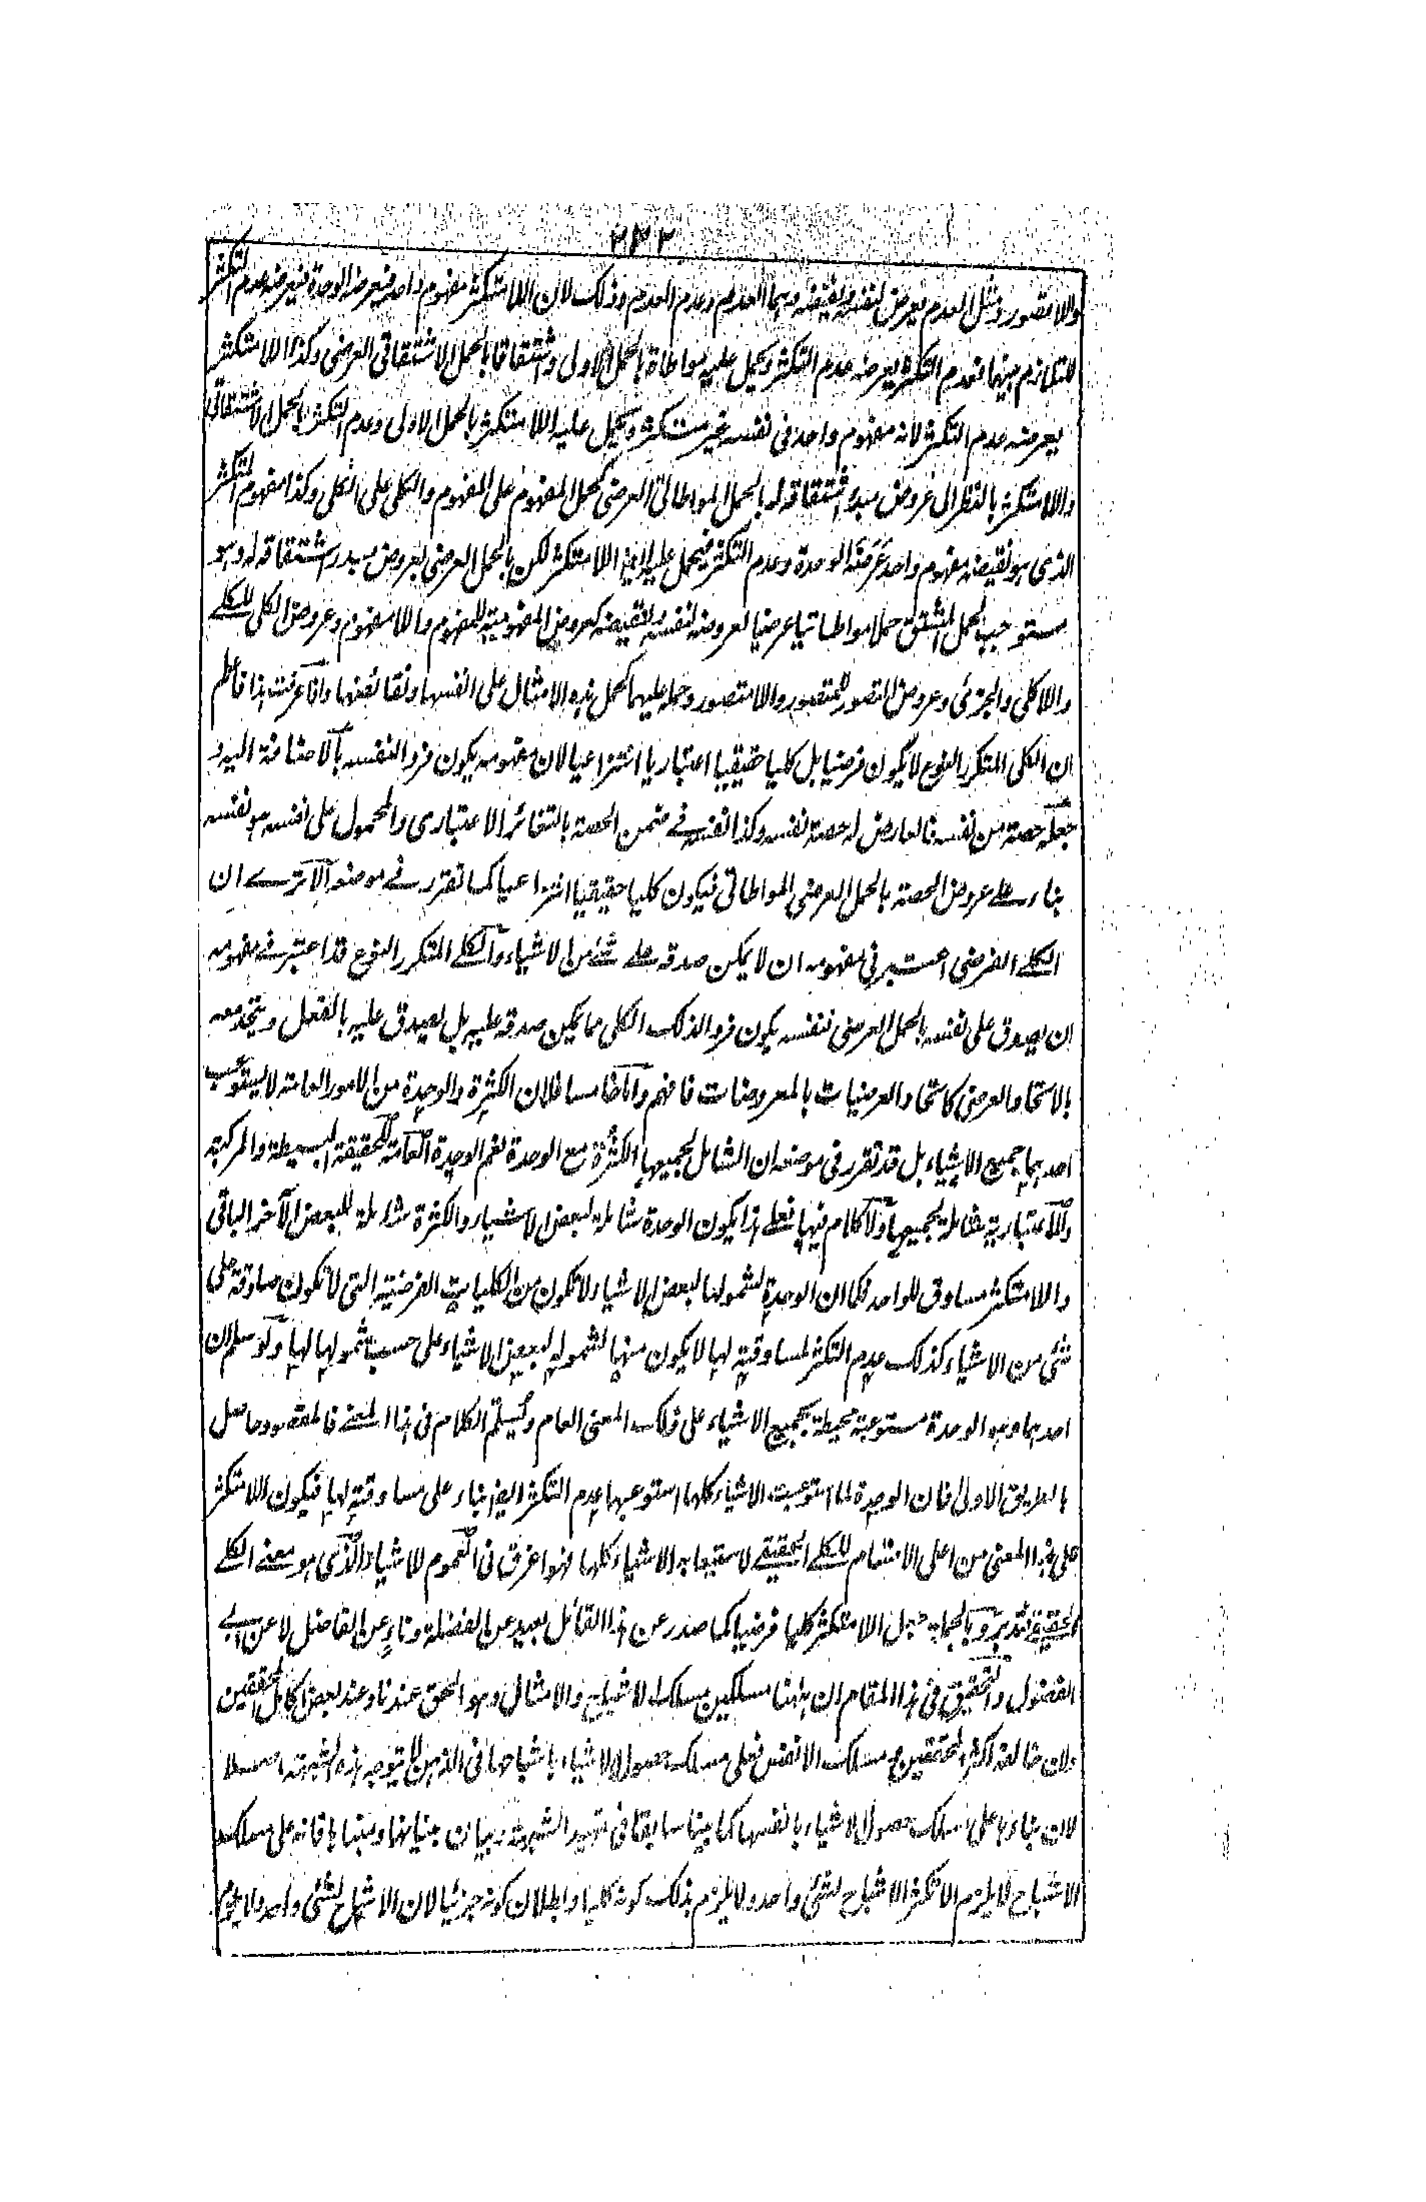 ٢٣٢
والامتصور ومثل العدم يعرض لنفسه ونقيضه وهما العدم وعدم العدم وذلك لان اللامتكثر مفهوم واحد فيعرضه الوحدة فيعرضه عدم التكثر
للتلازم بينهما فعدم التكثر يعرضه عدم التكثر ويحمل عليه مواطاة بالحمل الاولى واشتقاقا بالحمل الاشتقاقى العرضى وكذا اللامتكثر
يعرضه عدم التكثر لانه مفهوم واحد فى نفسه غير متكثر ويحمل عليه اللامتكثر بالحمل الاولى وعدم التكثر بالحمل الاشتقاقى
واللامتكثر بالنظر الى عروض مبدء اشتقاقه له بالحمل المواطاتى العرضى كحمل المفهوم على المفهوم والكلى على الكلى وكذا مفهوم المتكثر
الذى هو نقيضه مفهوم واحد عرضته الوحدة وعدم التكثر فيحمل عليه ايضا اللامتكثر لكن بالحمل العرضى بعروض مبدء اشتقاقه له وهو
مستوجب لحمل المشتق حملا مواطاتيا عرضيا لعروضه لنفسه ونقيضه كعروض المفهومية للمفهوم واللامفهوم وعروض الكلى للكلى
واللاكلى والجزئى وعروض التصور للمتصور واللامتصور وحمله عليهما كحمل هذه الامثال على انفسها ونقائضها واذا عرفت هذا فاعلم
ان الكلى المتكرر النوع لا يكون فرضيا بل كليا حقيقيا اعتباريا انتزاعيا لان مفهومه يكون فردا لنفسه بالاضافة اليه و
جعله حصة من نفسه فالعارض له حصة نفسه وكذا نفسه فى ضمن الحصة بالتغائر الاعتبارى والمحمول على نفسه هو نفسه
بناء على عروض الحصة بالحمل العرضى المواطاتى فيكون كليا حقيقيا انتزاعيا كما تقرر فى موضعه الا ترى ان
الكلى الفرضى اعتبر فى مفهومه ان لا يمكن صدقه على شئ من الاشياء والكلى المتكرر النوع قد اعتبر فى مفهومه
ان يصدق على نفسه بالحمل العرضى فنفسه يكون فردا لذلك الكلى مما يمكن صدقه عليه بل يصدق عليه بالفعل ويتحد معه
بالاتحاد العرضى كاتحاد العرضيات بالمعروضات فافهم واما خامسا فلان الكثرة والوحدة من الامور العامة لا يستوعب
احدهما جميع الاشياء بل قد تقرر فى موضعه ان الشامل لجميعها الكثرة مع الوحدة نعم الوحدة العامة للحقيقة البسيطة والمركبة
والاعتبارية شاملة لجميعها ولا كلام فيها فعلى هذا يكون الوحدة شاملة لبعض الاشياء والكثرة شاملة للبعض الآخر الباقى
واللامتكثر مساوق للواحد فكما ان الوحدة لشمولها لبعض الاشياء لا تكون من الكليات الفرضية التى لا تكون صادقة على
شئ من الاشياء كذلك عدم التكثر لمساوقته لها لا يكون منها لشموله لبعض الاشياء على حسب شمولها لها ولو سلم ان
احدهما وهو الوحدة مستوعبة محيطة بجميع الاشياء على ذلك المعنى العام ويسلم الكلام فى هذا المعنى فالمقصود حاصل
بالطريق الاولى فان الوحدة لما استوعبت الاشياء كلها استوعبها عدم التكثر ايضا بناء على مساوقته لها فيكون اللامتكثر
على هذا المعنى من اعلى الاقسام للكلى الحقيقى لاستيعابه الاشياء كلها فهو اعرق فى العموم للاشياء الذى هو معنى الكلى
الحقيقى فتدبر وبالجملة جعل اللامتكثر كليا فرضيا كما صدر عن هذا القائل بعيد عن الفضلة وناء عن الفاضل لا عن ابى
الفضول والتحقيق فى هذا المقام ان ههنا مسلكين مسلك الاشباح والامثال وهو الحق عندنا وعند بعض كمل المحققين
وان خالفه اكثر المحققين ومسلك الانفس فعلى مسلك حصول الاشياء باشباحها فى الذهن لا يتوجه هذه الشبهة اصلا
لان بناءها على مسلك حصول الاشياء بانفسها كما بينا سابقا فى تمهيد الشبهة وبيان بنيانها ومبناها فانه على مسلك
الاشباح لا يلزم الا تكثر الاشباح لشئ واحد ولا يلزم بذلك كونه كليا وابطلان كونه جزئيا لان الاشباح لشئ واحد ولا يلزم